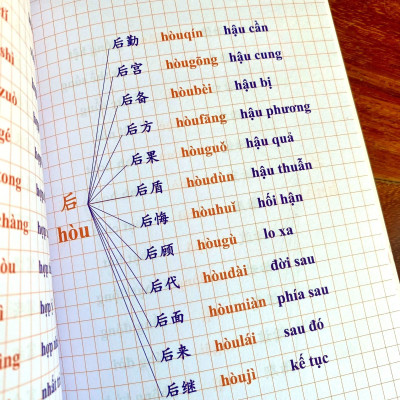 后勤 hòuqín hậu cần
后宫 hòugōng hậu cung
后备 hòubèi hậu bị
后方 hòufāng hậu phương
后果 hòuguǒ hậu quả
后盾 hòudùn hậu thuẫn
后悔 hòuhuǐ hối hận
后顾 hòugù lo xa
后代 hòudài đời sau
后面 hòumiàn phía sau
后来 hòulái sau đó
后继 hòujì kế tục
后
hòu
zuò
gé